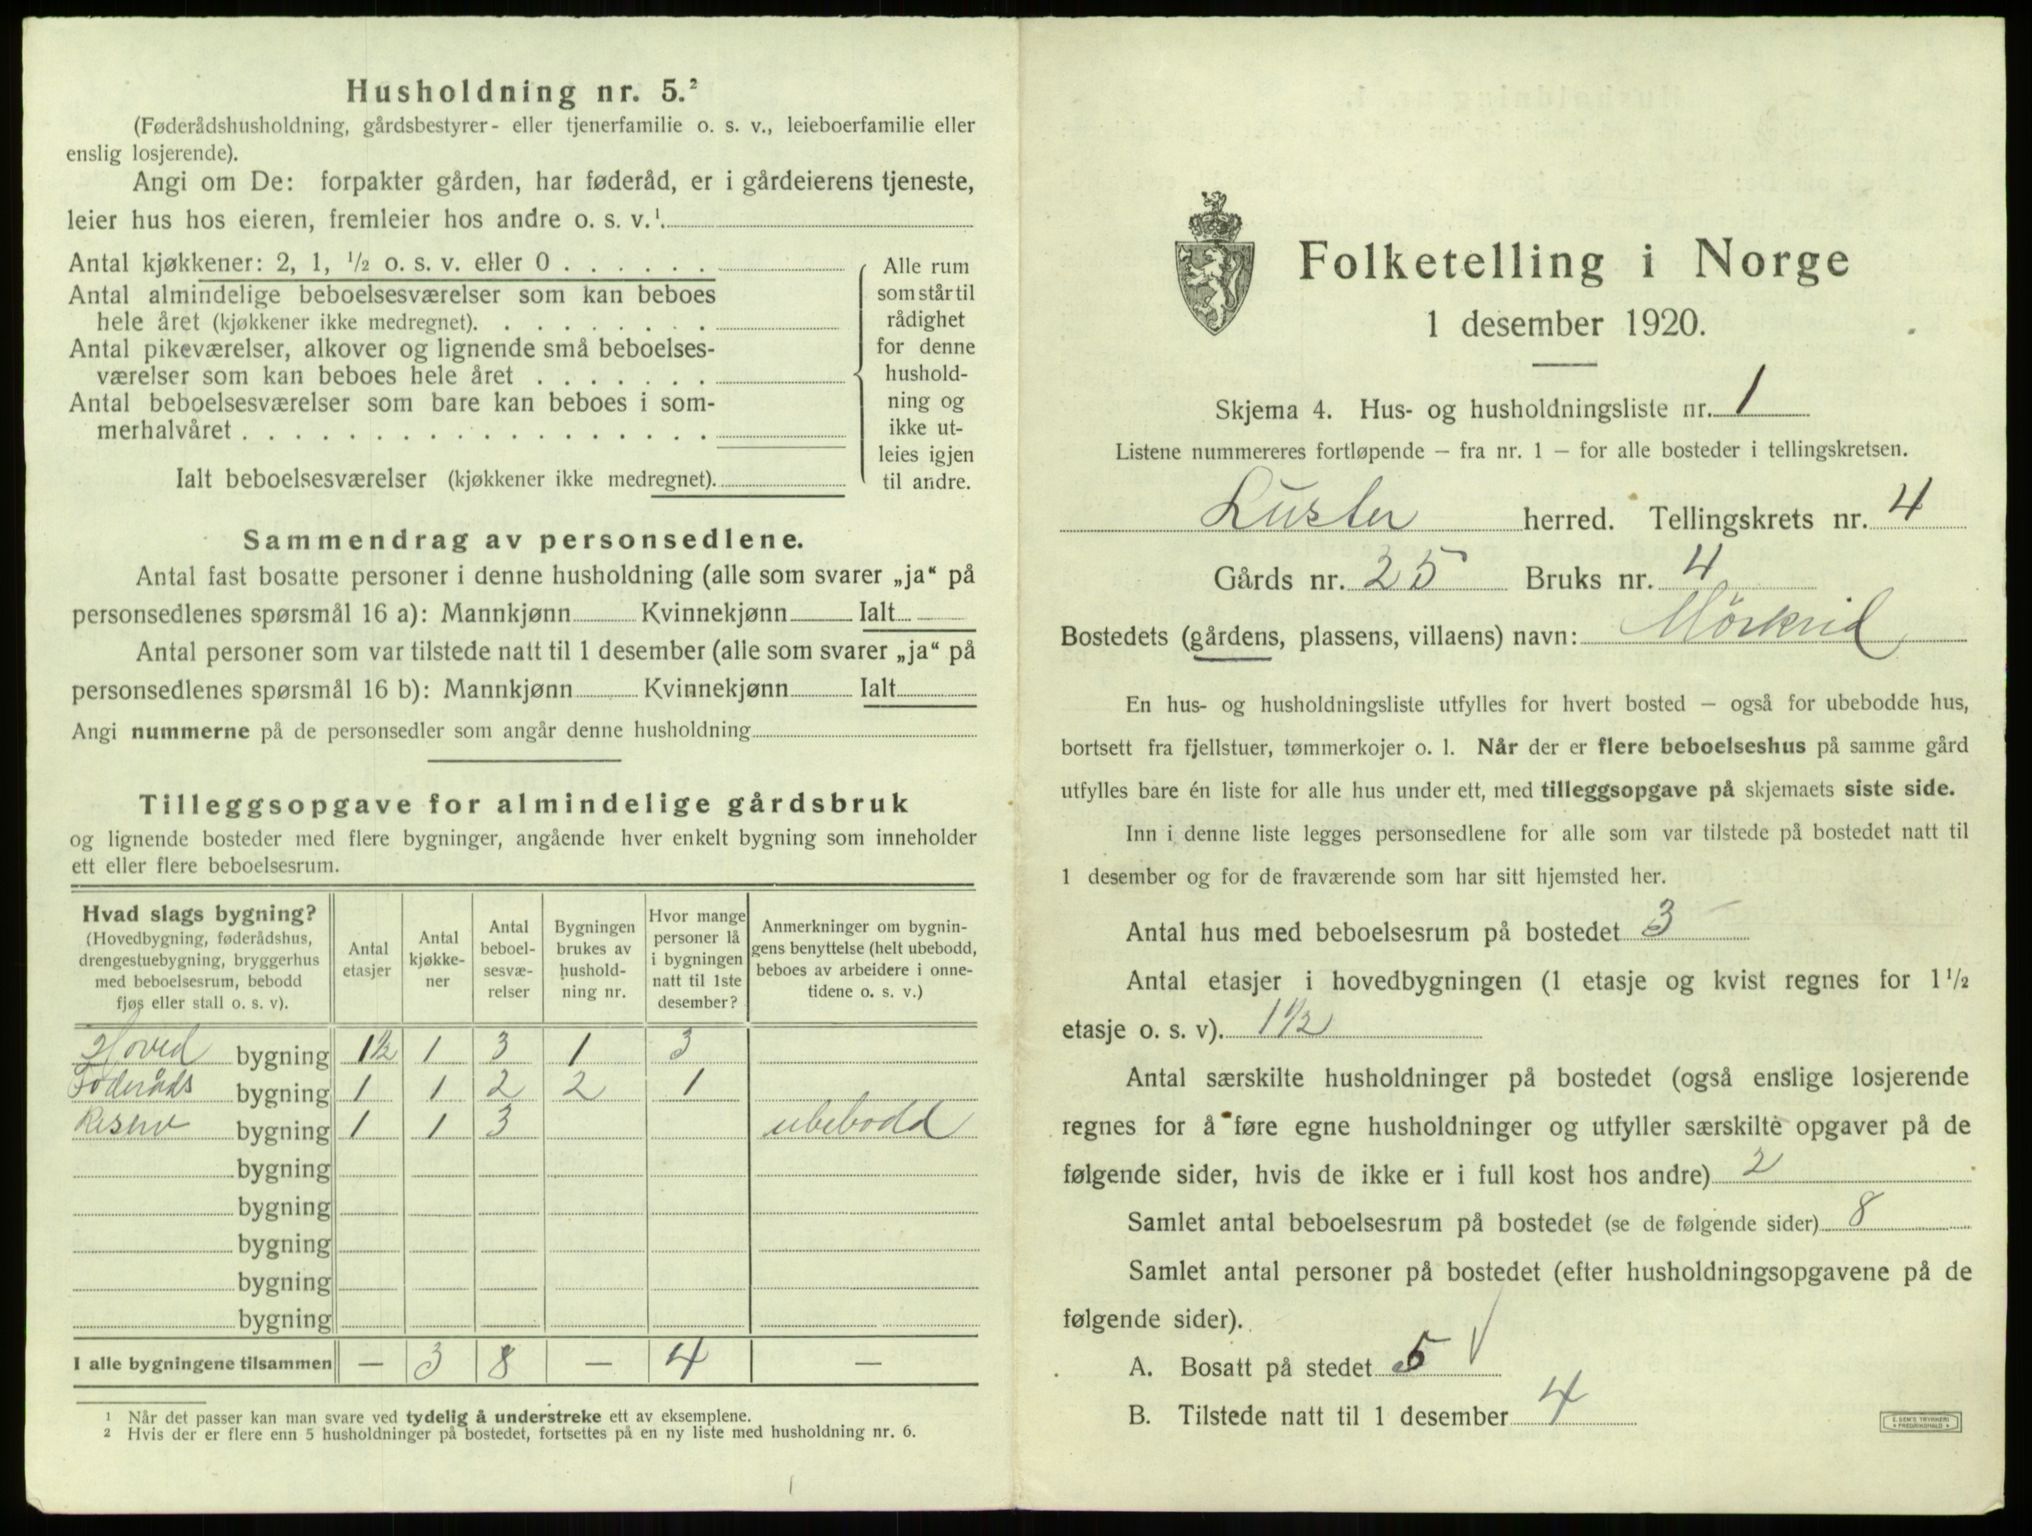 Husholdning nr. 5.²
(Føderådshusholdning, gårdsbestyrer- eller tjenerfamilie o. s. v., leieboerfamilie eller
enslig losjerende).
Angi om De: forpakter gården, har føderåd, er i gårdeierens tjeneste,
leier hus hos eieren, fremleier hos andre o. s. v.¹.
Antal kjøkkener: 2, 1, ½ o. s. v. eller 0 . . . . . .
Antal almindelige beboelsesværelser som kan beboes
hele året (kjøkkener ikke medregnet). . . . . . . . .
Antal pikeværelser, alkover og lignende små beboelses-
værelser som kan beboes hele året . . . . . . .
Antal beboelsesværelser som bare kan beboes i som-
merhalvåret . . . . . . . . . . . . . . . . . .
Ialt beboelsesværelser (kjøkkener ikke medregnet).
Alle rum
som står til
rådighet
for denne
hushold-
ning og
ikke ut-
leies igjen
til andre.
Sammendrag av personsedlene.
Antal fast bosatte personer i denne husholdning (alle som svarer „ja“ på
personsedlenes spørsmål 16 a): Mannkjønn Kvinnekjønn Ialt
Antal personer som var tilstede natt til 1 desember (alle som svarer „ja“ på
personsedlenes spørsmål 16 b): Mannkjønn Kvinnekjønn Ialt
Angi nummerne på de personsedler som angår denne husholdning
Tilleggsopgave for almindelige gårdsbruk
og lignende bosteder med flere bygninger, angående hver enkelt bygning som inneholder
ett eller flere beboelsesrum.
Hvad slags bygning?
(Hovedbygning, føderådshus,
drengestuebygning, bryggerhus
med beboelsesrum, bebodd
fjøs eller stall o. s. v).
Antal
etasjer
Antal
kjøkke-
ner
Antal
beboel-
sesvæ-
relser
Bygningen
brukes av
hushold-
ning nr.
Hvor mange
personer lå
i bygningen
natt til 1ste
desember?
Anmerkninger om bygnin-
gens benyttelse (helt ubebodd,
beboes av arbeidere i onne-
tidene o. s. v.)
Hoved bygning 1½ 1 3 1 3
Føderåds bygning 1 1 2 2 1
Reserv bygning 1 1 3 ubebodd
bygning
bygning
bygning
bygning
bygning
I alle bygningene tilsammen — 3 8 — 4 —
¹ Når det passer kan man svare ved tydelig å understreke ett av eksemplene.
² Hvis der er flere enn 5 husholdninger på bostedet, fortsettes på en ny liste med husholdning nr. 6.
Folketelling i Norge
1 desember 1920.
Skjema 4. Hus- og husholdningsliste nr. 1
Listene nummereres fortløpende – fra nr. 1 – for alle bosteder i tellingskretsen.
Luster herred. Tellingskrets nr. 4
Gårds nr. 25 Bruks nr. 4
Bostedets (gårdens, plassens, villaens) navn: Mørkrid
En hus- og husholdningsliste utfylles for hvert bosted – også for ubebodde hus,
bortsett fra fjellstuer, tømmerkojer o. l. Når der er flere beboelseshus på samme gård
utfylles bare én liste for alle hus under ett, med tilleggsopgave på skjemaets siste side.
Inn i denne liste legges personsedlene for alle som var tilstede på bostedet natt til
1 desember og for de fraværende som har sitt hjemsted her.
Antal hus med beboelsesrum på bostedet 3
Antal etasjer i hovedbygningen (1 etasje og kvist regnes for 1½
etasje o. s. v). 1½
Antal særskilte husholdninger på bostedet (også enslige losjerende
regnes for å føre egne husholdninger og utfyller særskilte opgaver på de
følgende sider, hvis de ikke er i full kost hos andre) 2
Samlet antal beboelsesrum på bostedet (se de følgende sider) 8
Samlet antal personer på bostedet (efter husholdningsopgavene på de
følgende sider).
A. Bosatt på stedet 5
B. Tilstede natt til 1 desember 4
E. SEM'S TRYKKERI
FREDRIKSHALD